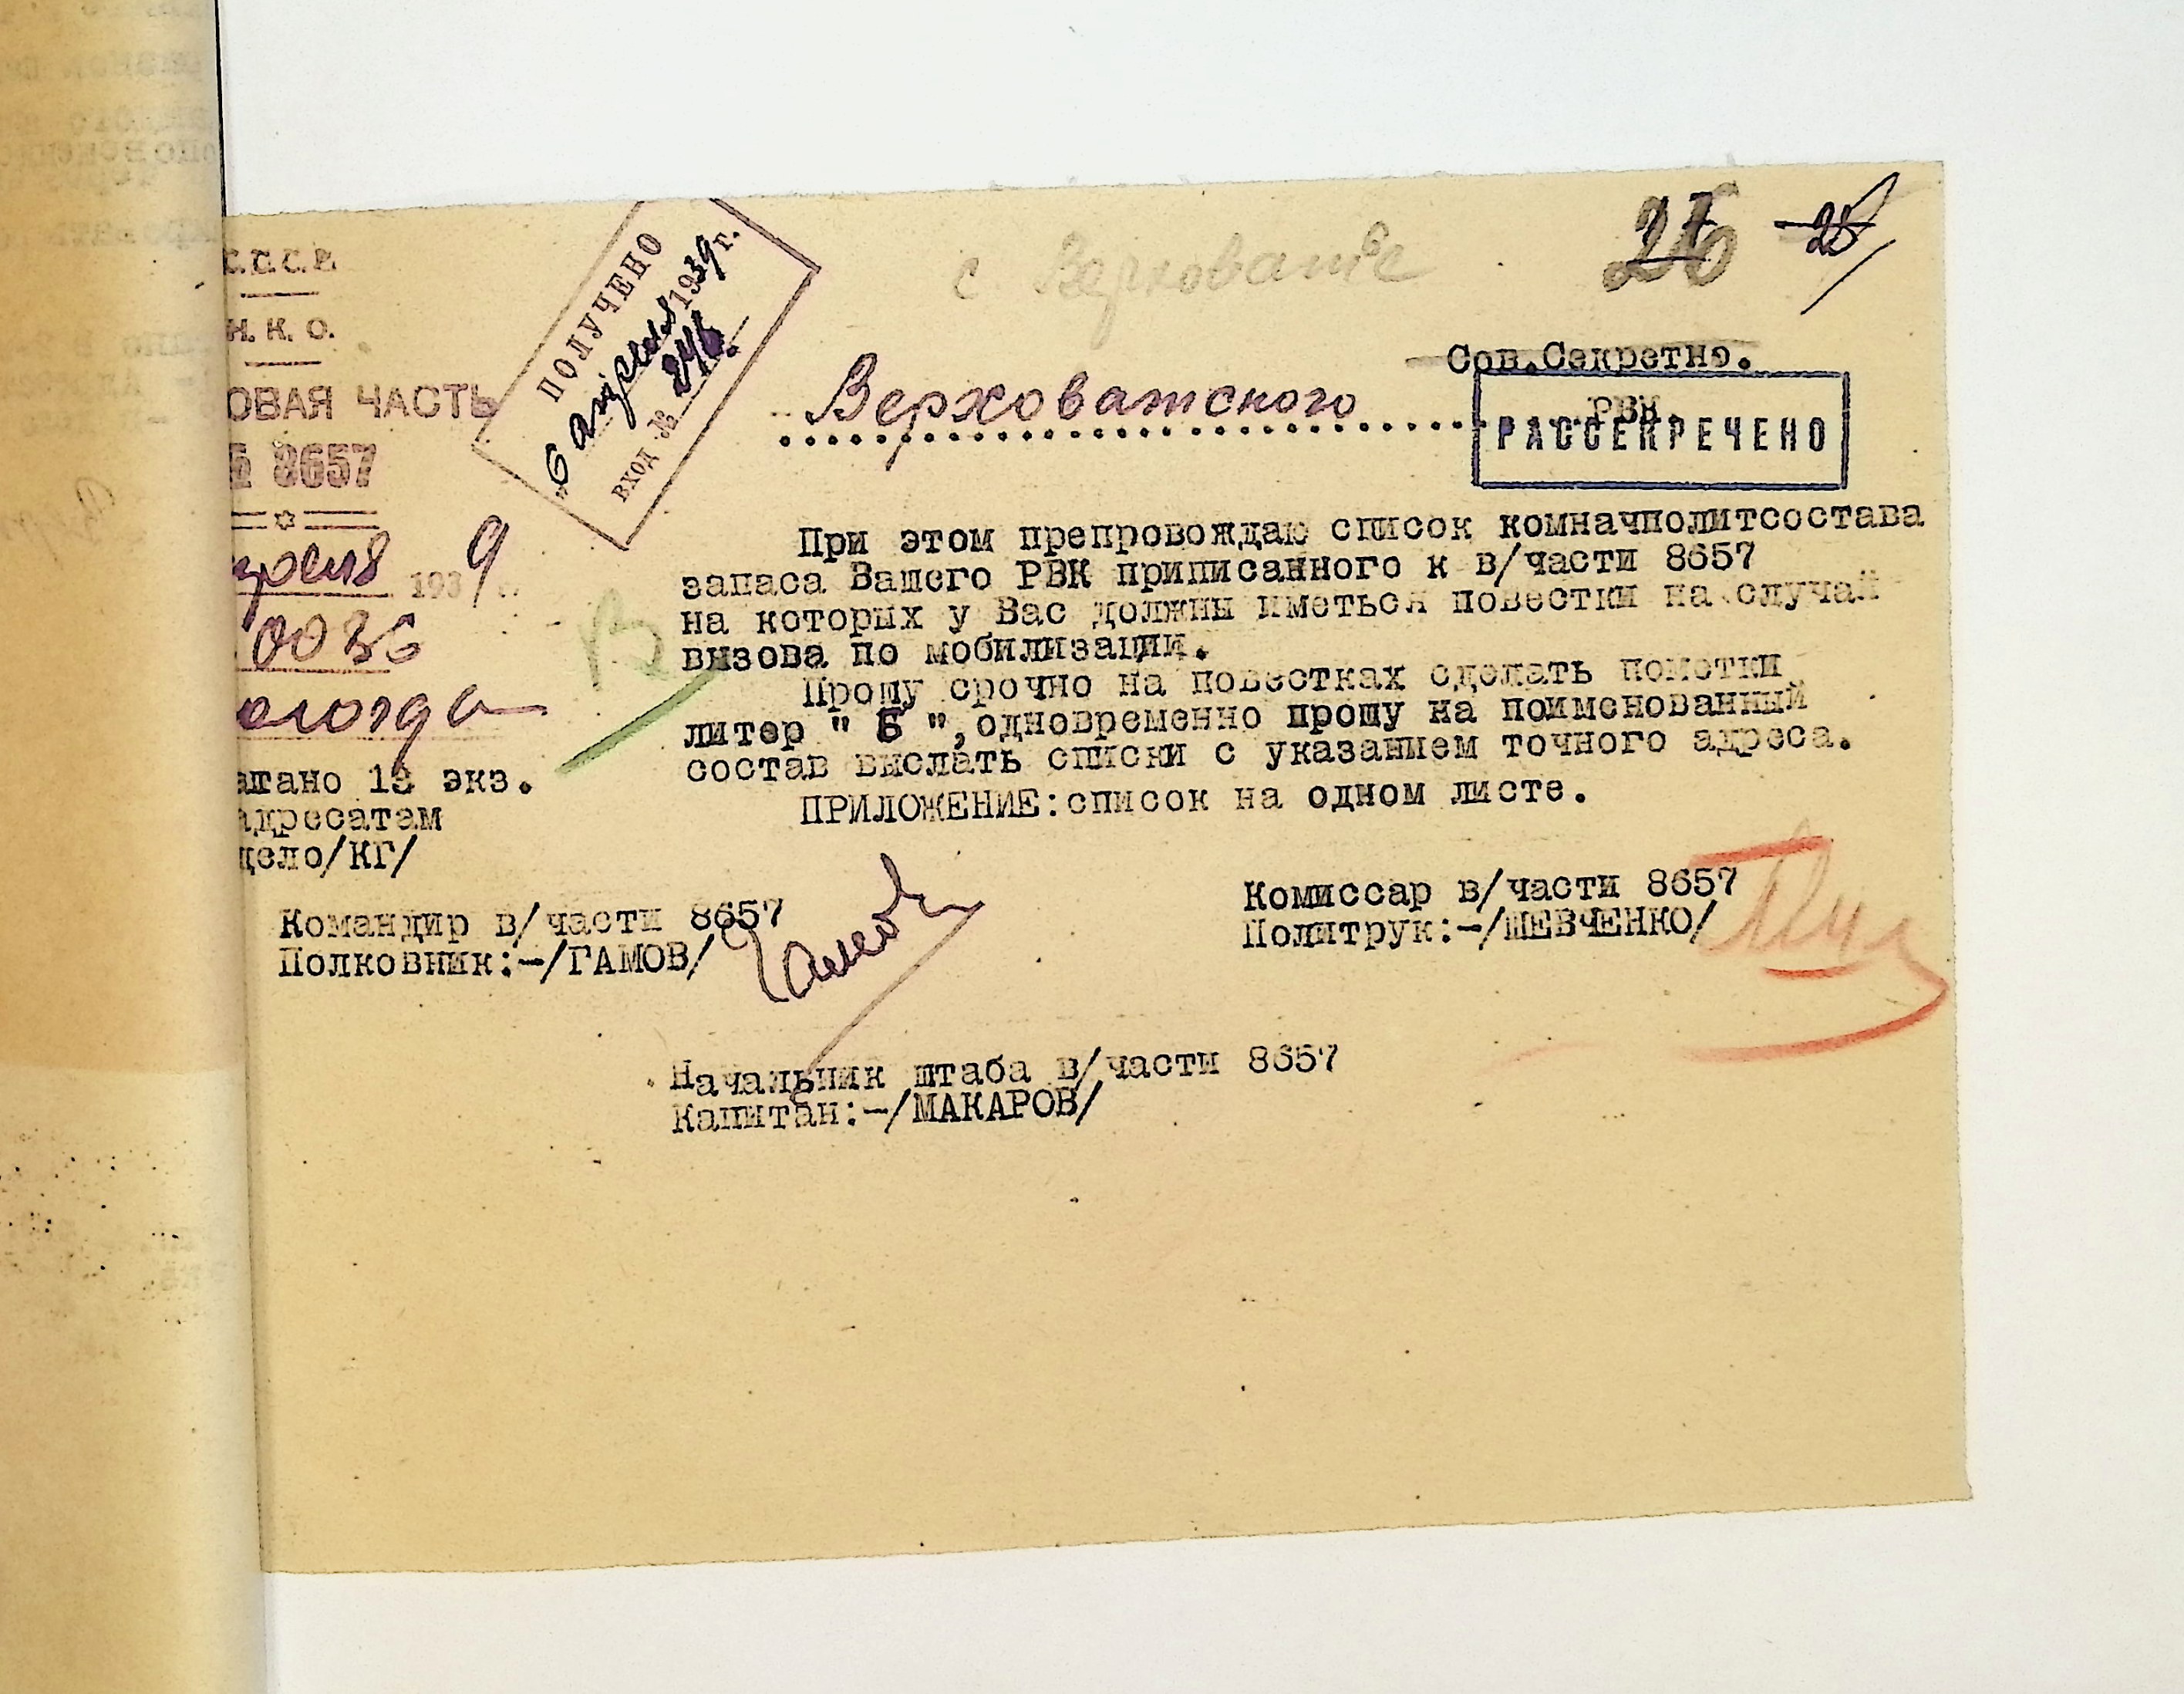 с Верховажье
26 28
С.С.С.Р.
Н. К. О.
ОВАЯ ЧАСТЬ
№ 8657
преля 1939 г.
0036
ологда
ПОЛУЧЕНО
"6 апреля 1939 г.
ВХОД. № 246.
Сов.Секретно.
Верховатского РВК.
РАССЕКРЕЧЕНО
При этом препровождаю список комначполитсостава
запаса Вашего РВК приписанного к в/части 8657
на которых у Вас должны иметься повестки на случай
вызова по мобилизации.
Прошу срочно на повестках сделать пометки
литер " Б ",одновременно прошу на поименованный
состав выслать списки с указанием точного адреса.
ПРИЛОЖЕНИЕ:список на одном листе.
атано 13 экз.
адресатам
дело/КГ/
Командир в/части 8657
Полковник:-/ГАМОВ/
Гамов
Комиссар в/части 8657
Политрук:-/ШЕВЧЕНКО/
Начальник штаба в/части 8657
Капитан:-/МАКАРОВ/